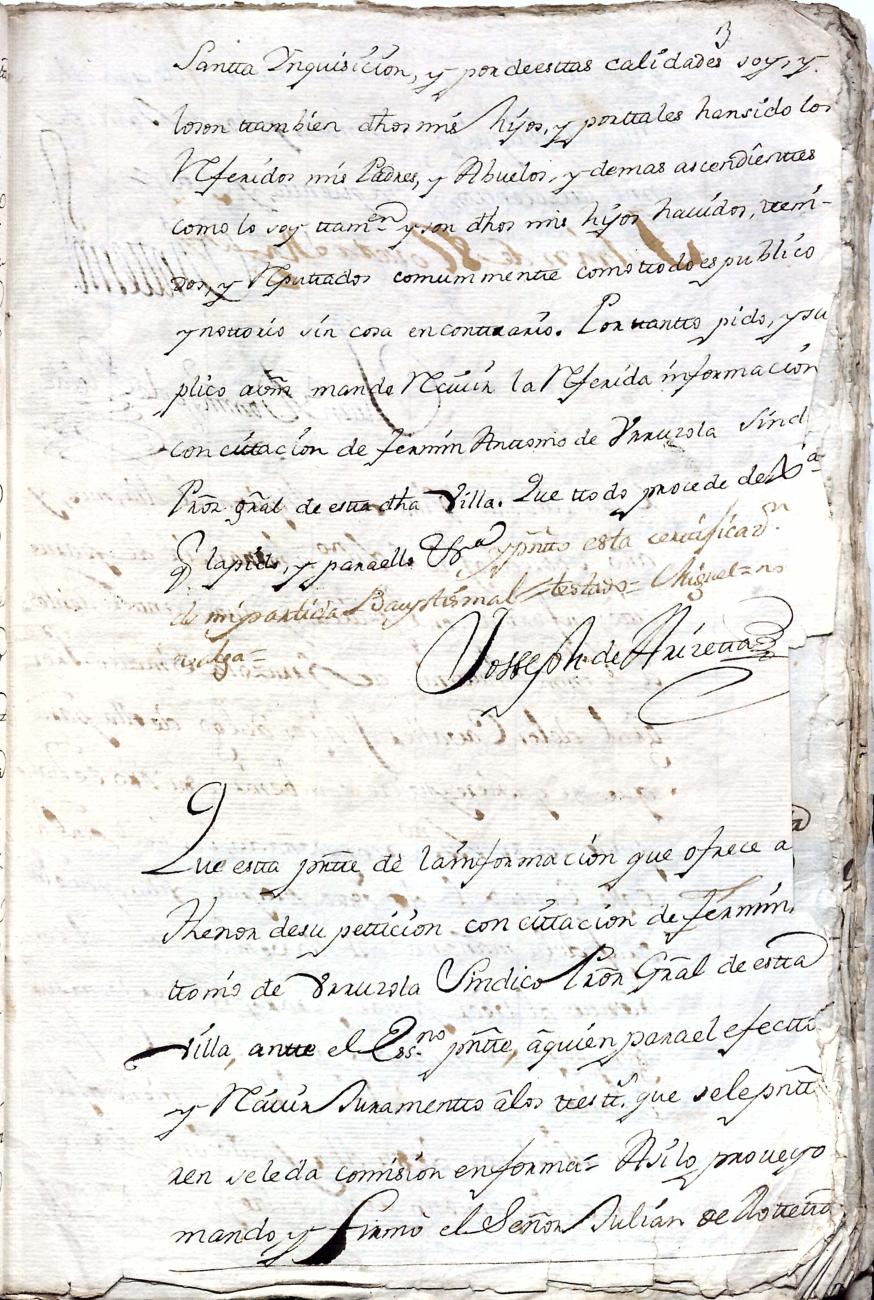 3
Santta Ynquisicion, y por de esttas calidades soy, y
loson ttambien dhos mis hijos, y porttales hansido los
Referidos mis Padres, y Abuelos, y demas ascendienttes
como lo soy ttamen y son dhos mis hijos havidos, tteni-
dos, y Reputtados comunmentte como ttodo es publico
y nottorio sin cosa en conttrario. Por ttantto pido, y su
plico a vm mande Recivir la Referida informacion
con cittacion de Fermin Anttonio de Urruzola Sind
Pror gral de estta dha Villa. Que ttodo procede de
q la pido, y para ello & y pntto esta certificaon
de mi partida Bauptismal testado= Miguel= no
valga=
Josseph de Arizetta
Que estta pntte de la informacion que ofrece a
thenor de su petticion con cittacion de Fermin
ttonio de Urruzola Sindico Pror Gral de estta
Villa, antte el Essno pntte, a quien para el efectto
y Recivir Juramentto a los ttesttos que se le pntta
ren se le da comision en forma= Asi lo proveyo
mando y firmo el Señor Julian de